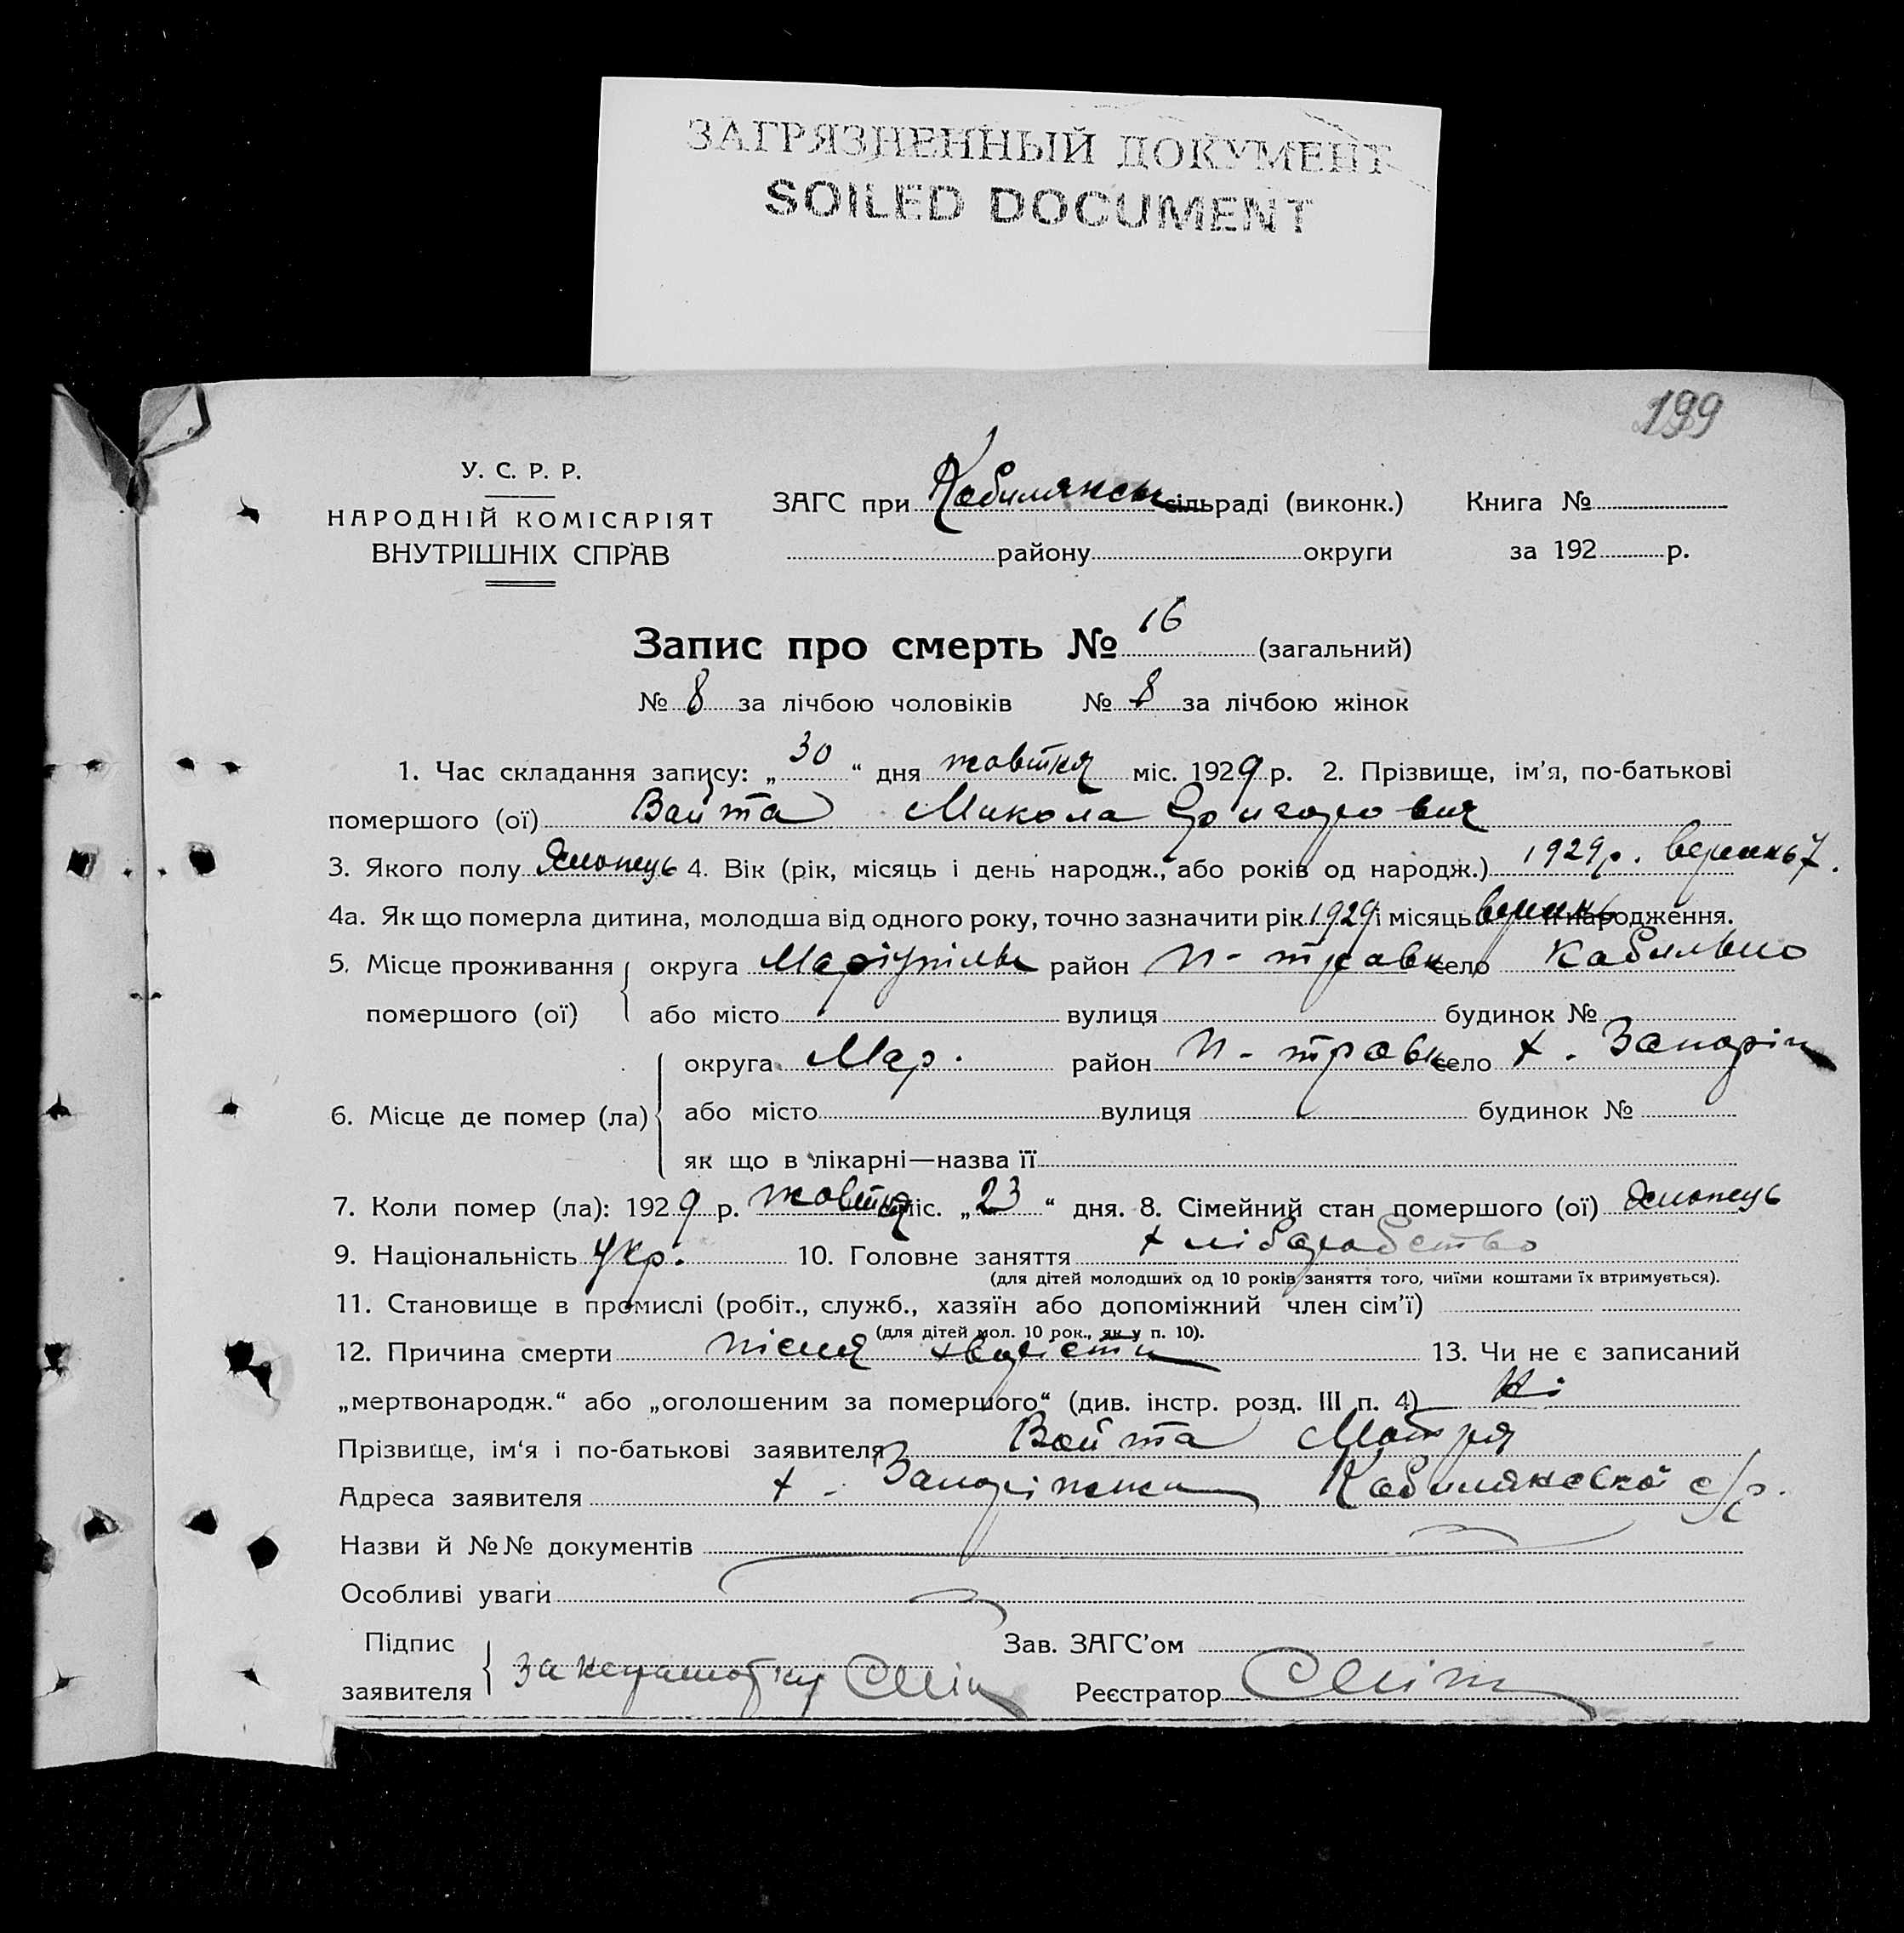 ЗАГРЯЗНЕННЫЙ ДОКУМЕНТ
SOILED DOCUMENT
199
У. С. Р. Р.
НАРОДНІЙ КОМІСАРІЯТ
ВНУТРІШНІХ СПРАВ
ЗАГС при Кобилянськ сільраді (виконк.) Книга №
району округи за 192 р.
Запис про смерть № 16 (загальний)
№ 8 за лічбою чоловіків № 8 за лічбою жінок
1. Час складання запису: „ 30 “ дня жовтня міс. 1929 р. 2. Прізвище, ім'я, по-батькові
помершого (ої) Вайта Микола Григорович
3. Якого полу Хлопець 4. Вік (рік, місяць і день народж., або років од народж.) 1929 р. вересень 7.
4а. Як що померла дитина, молодша від одного року, точно зазначити рік 1929 і місяць вересень її народження.
5. Місце проживання округа Маріупільськ район н- село
помершого (ої) або місто вулиця будинок №
округа Мар. район село х.
6. Місце де помер (ла) або місто вулиця будинок №
як що в лікарні—назва її
7. Коли помер (ла): 1929 р. жовтня міс. „ 23 “ дня. 8. Сімейний стан помершого (ої) Хлопець
9. Національність Укр. 10. Головне заняття хліборобство
(для дітей молодших од 10 років заняття того, чиїми коштами їх втримується).
11. Становище в промислі (робіт., служб., хазяїн або допоміжний член сім'ї)
(для дітей мол. 10 рок., як у п. 10).
12. Причина смерти після 13. Чи не є записаний
„мертвонародж.“ або „оголошеним за помершого“ (див. інстр. розд. III п. 4) Ні
Прізвище, ім'я і по-батькові заявителя Вайта Мотря
Адреса заявителя х. Запоріжжя Кобилянської с/р.
Назви й №№ документів
Особливі уваги
Підпис Зав. ЗАГС'ом
заявителя за Реєстратор